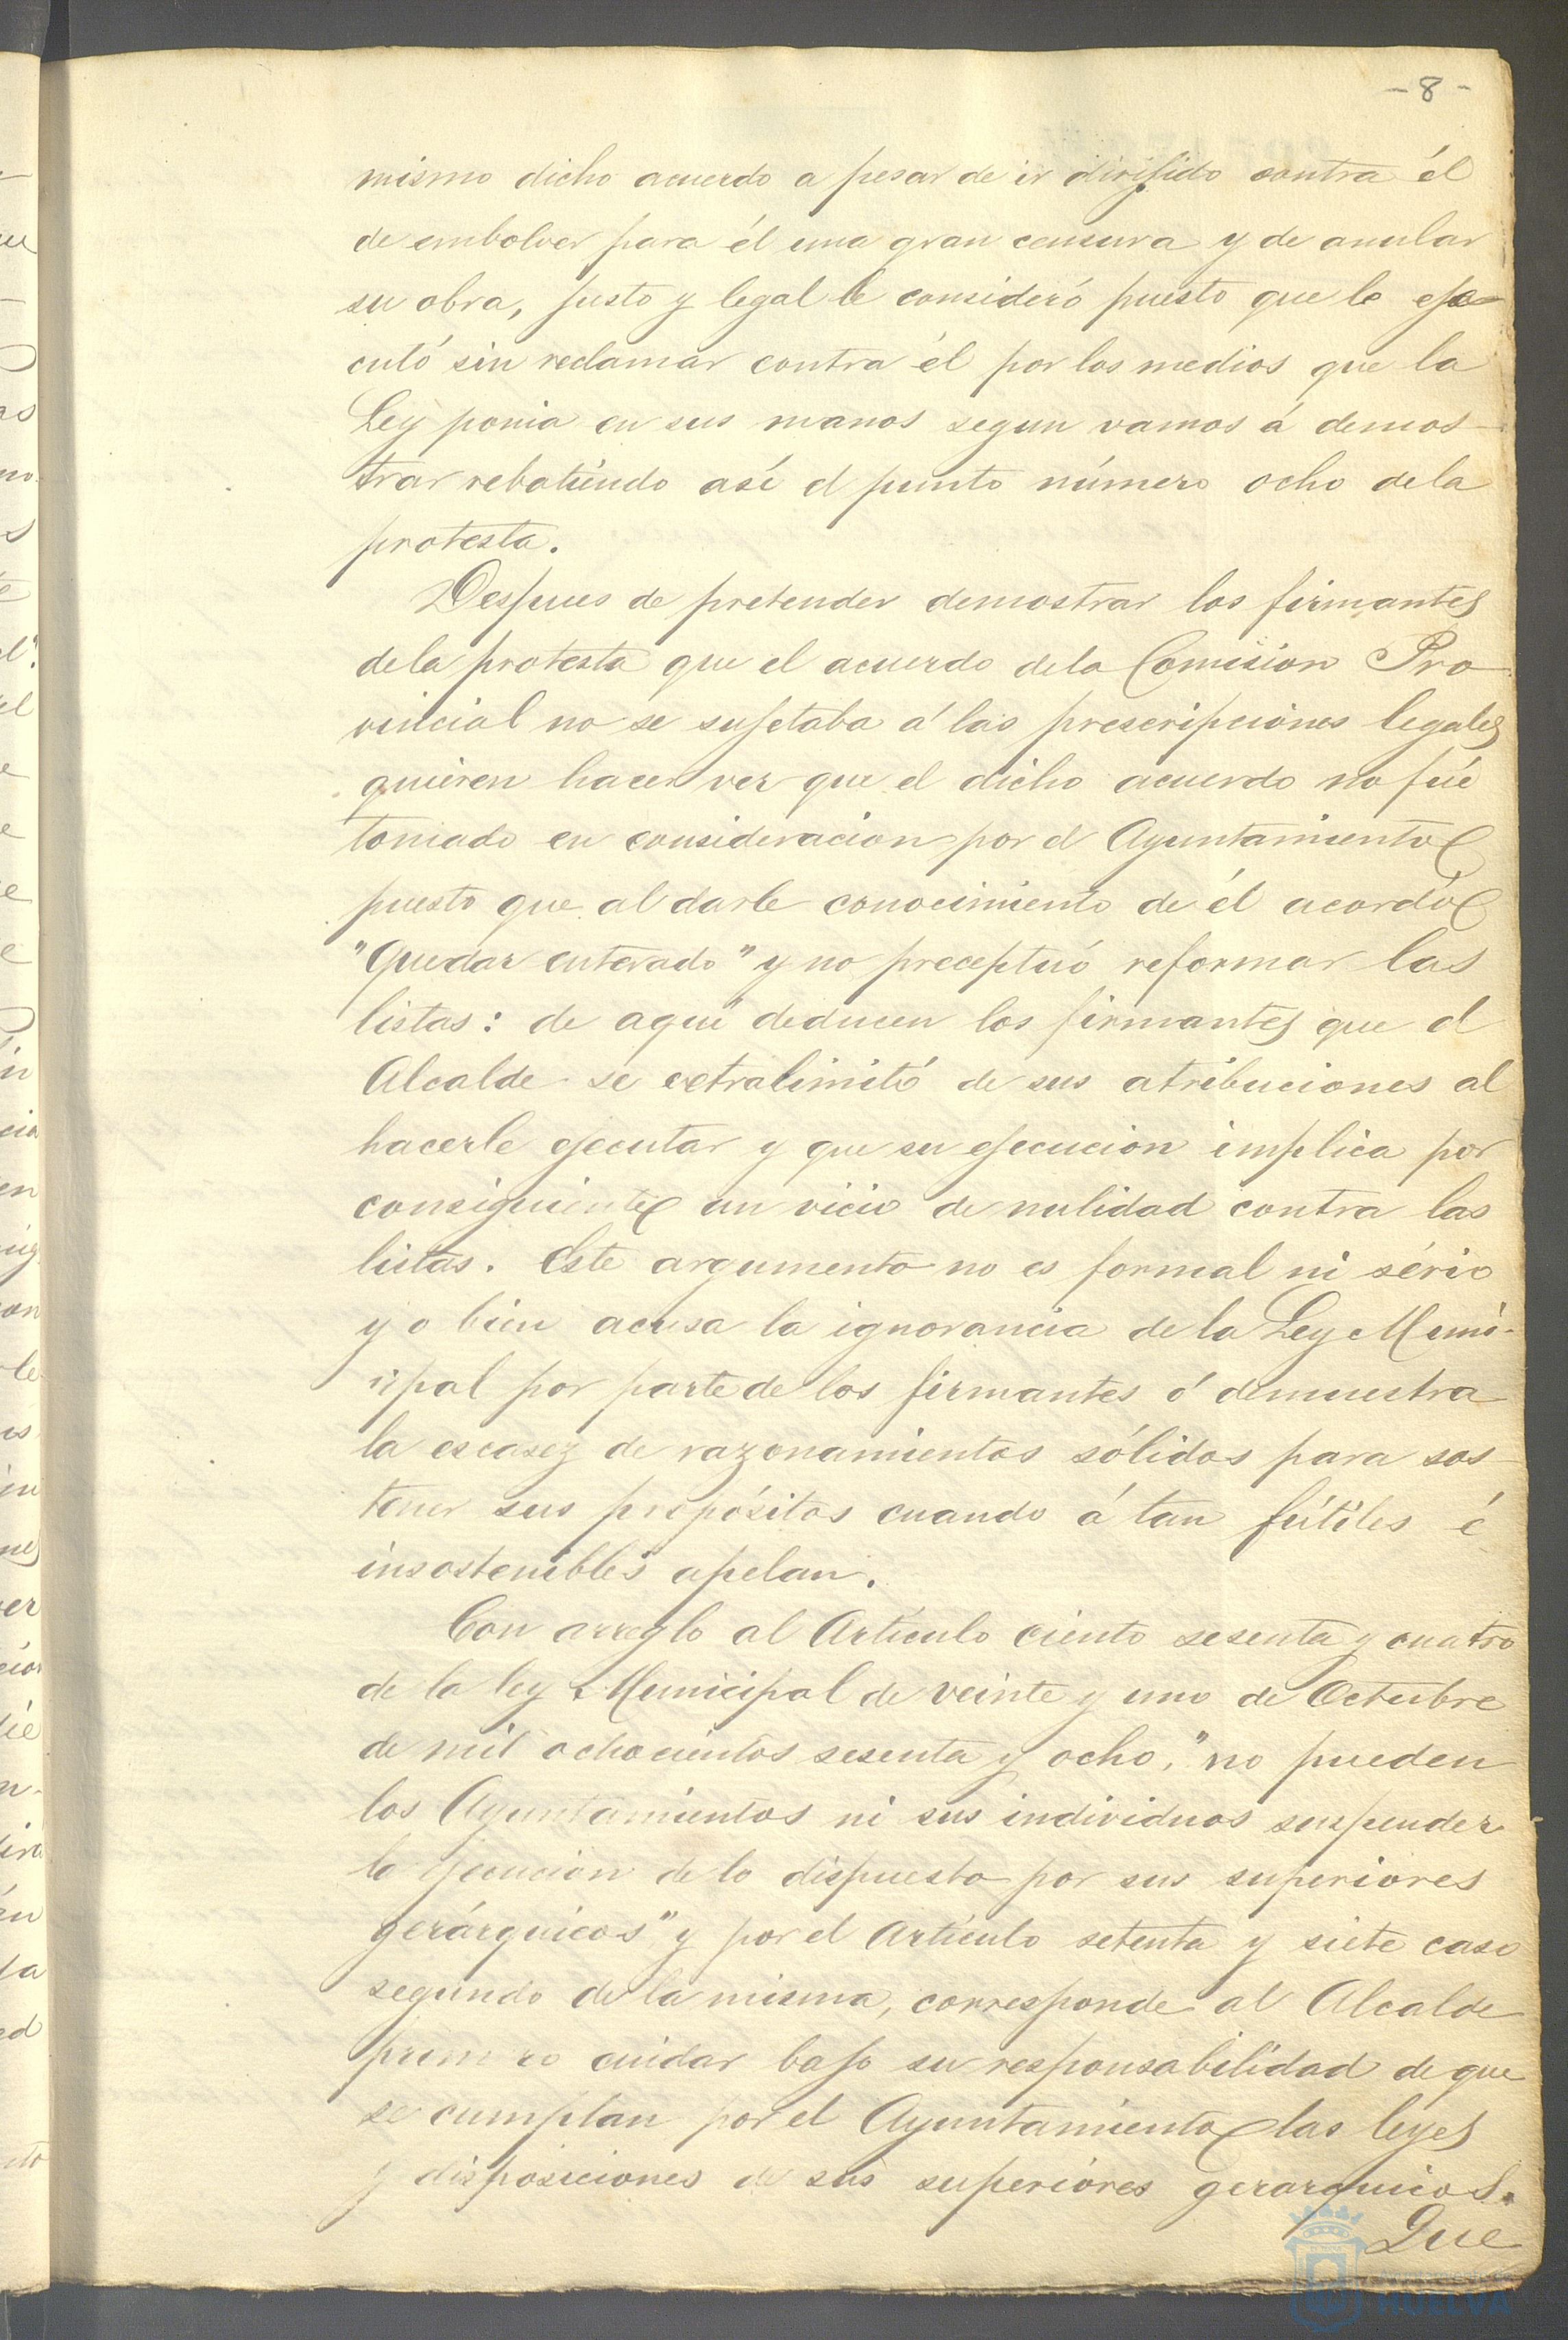 - 8 -
mismo dicho acuerdo a pesar de ir dirijido contra él
de embolver para él una gran censura y de anular
su obra, justo y legal le consideró puesto que le eje-
cutó sin reclamar contra él por los medios que la
Ley ponia en sus manos segun vamos á demos-
trar rebatiendo así el punto número ocho de la
protesta.
Despues de pretender demostrar los firmantes
de la protesta que el acuerdo de la Comision Pro
vincial no se sujetaba á las prescripciones legales
quieren hacer ver que el dicho acuerdo no fué
tomado en consideracion por el Ayuntamiento
puesto que al darle conocimiento de él acordó
"Quedar enterado" y no preceptuó reformar las
listas: de aqui deducen los firmantes que el
Alcalde se extralimitó de sus atribuciones al
hacerle ejecutar y que su ejecucion implica por
consiguiente un vicio de nulidad contra las
listas. Este argumento no es formal ni sério
y o bien acusa la ignorancia de la Ley Muni-
cipal por parte de los firmantes ó demuestra
la escasez de razonamientos sólidos para sos-
tener sus propósitos cuando á tan fútiles é
insostenibles apelan.
Con arreglo al Artículo ciento sesenta y cuatro
de la ley Municipal de veinte y uno de Octubre
de mil ochocientos sesenta y ocho, "no pueden
los Ayuntamientos ni sus individuos suspender
la ejecucion de lo dispuesto por sus superiores
gerárquicos" y por el Artículo setenta y siete caso
segundo de la misma, corresponde al Alcalde
primero cuidar bajo su responsabilidad de que
se cumplan por el Ayuntamiento las leyes
y disposiciones de sus superiores gerarquicos.
Que
HUELVA